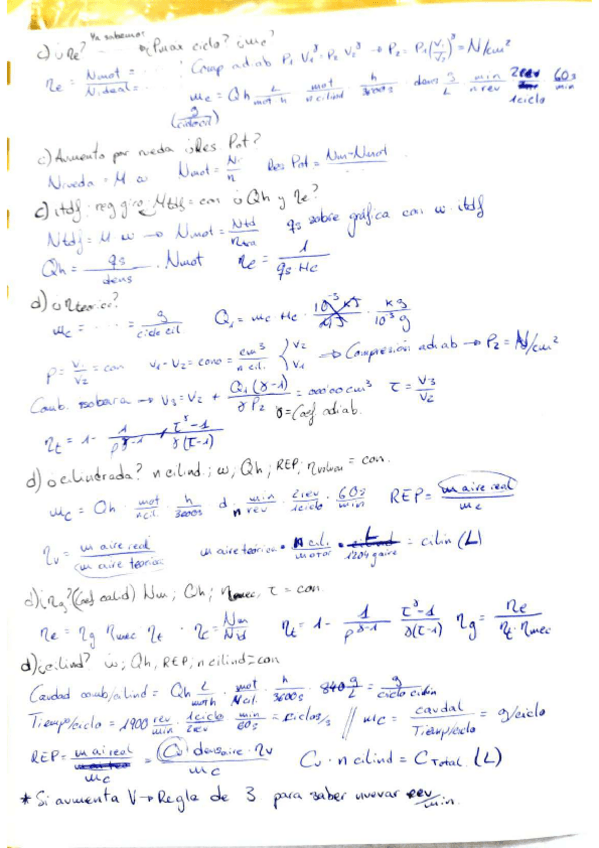 Ya sabemos
c) ¿ηe? ¿Pmax ciclo? ¿mc?
ηe = Nmot / Nideal = Comp adiab P1 V1^γ = P2 V2^γ → P2 = P1 (V1/V2)^γ = N/cm²
mc = Qh L/mot h · mot/n cilind · h/3600s · dens g/L · min/n rev · 2rev/1ciclo · 60s/min
(g/ciclo cil)
c) Aumento por rueda ¿Res Pot?
Nrueda = M ω Nmot = Nr/η Res Pot = Nm - Nmot
c) itdf; reg giro; Mtdf = con ¿Qh y ηe?
Ntdf = M ω → Nmot = Ntd/ηtra qs sobre gráfica con ω · itdf
Qh = qs/dens · Nmot ηe = 1/(qs Hc)
d) ¿ηteorico?
mc = ... = g/ciclo cil Q1 = mc Hc · 10^-3 · kg/10³ g
ρ = V1/V2 = con V1 - V2 = cono = cm³/n cil. { V2 V1 → Compresión adiab → P2 = N/cm²
Comb. isobara → V3 = V2 + Q1 (γ-1)/(γ P2) = 000'00 cm³ τ = V3/V2
γ = Coef adiab.
ηt = 1 - 1/ρ^(γ-1) · (τ^γ - 1)/(γ(τ-1))
d) ¿cilindrada? n cilind; ω; Qh; REP; ηvolum = con.
mc = Qh · mot/n cil. · h/3600s d min/n rev · 2rev/1ciclo · 60s/min REP = m aire real/mc
ηv = m aire real/m aire teorica m aire teorica · n cil./motor · L/1204 g aire = cilin (L)
d) ¿ηg? (Coef calid) Nm; Qh; ηmec, τ = con.
ηe = ηg ηmec ηt · ηe = Nm/Nd ηt = 1 - 1/ρ^(γ-1) (τ^γ - 1)/(γ(τ-1)) ηg = ηe/(ηt · ηmec)
d) ¿cilind? ω; Qh, REP; n cilind = con
Caudal comb/cilind = Qh L/mot h · mot/n cil. · h/3600s · 840 g/L = g/ciclo cilin
Tiempo/ciclo = 1900 rev/min · 1ciclo/2rev · min/60s = ciclos/s // mc = caudal/Tiempo/ciclo = g/ciclo
REP = m aireal/mc = Cu · dens aire · ηv/mc Cu · n cilind = C Total. (L)
* Si aumenta V → Regla de 3 para saber nuevar rev/min.